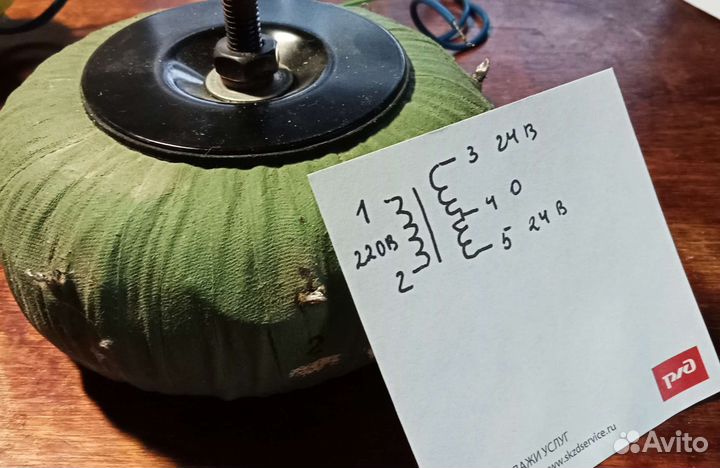 3 24 В
1
4 0
220В
5 24 В
2
pzd
ДАЖИ УСЛУГ
www.skzdservice.ru
Avito